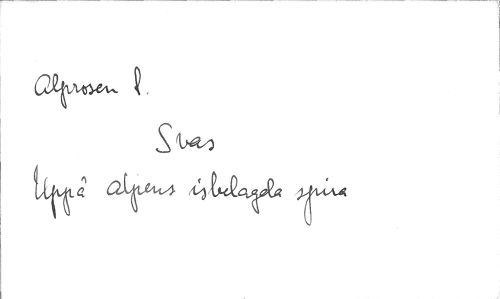 Alprosen P.
Svas
Uppå alpens isbelagda spira